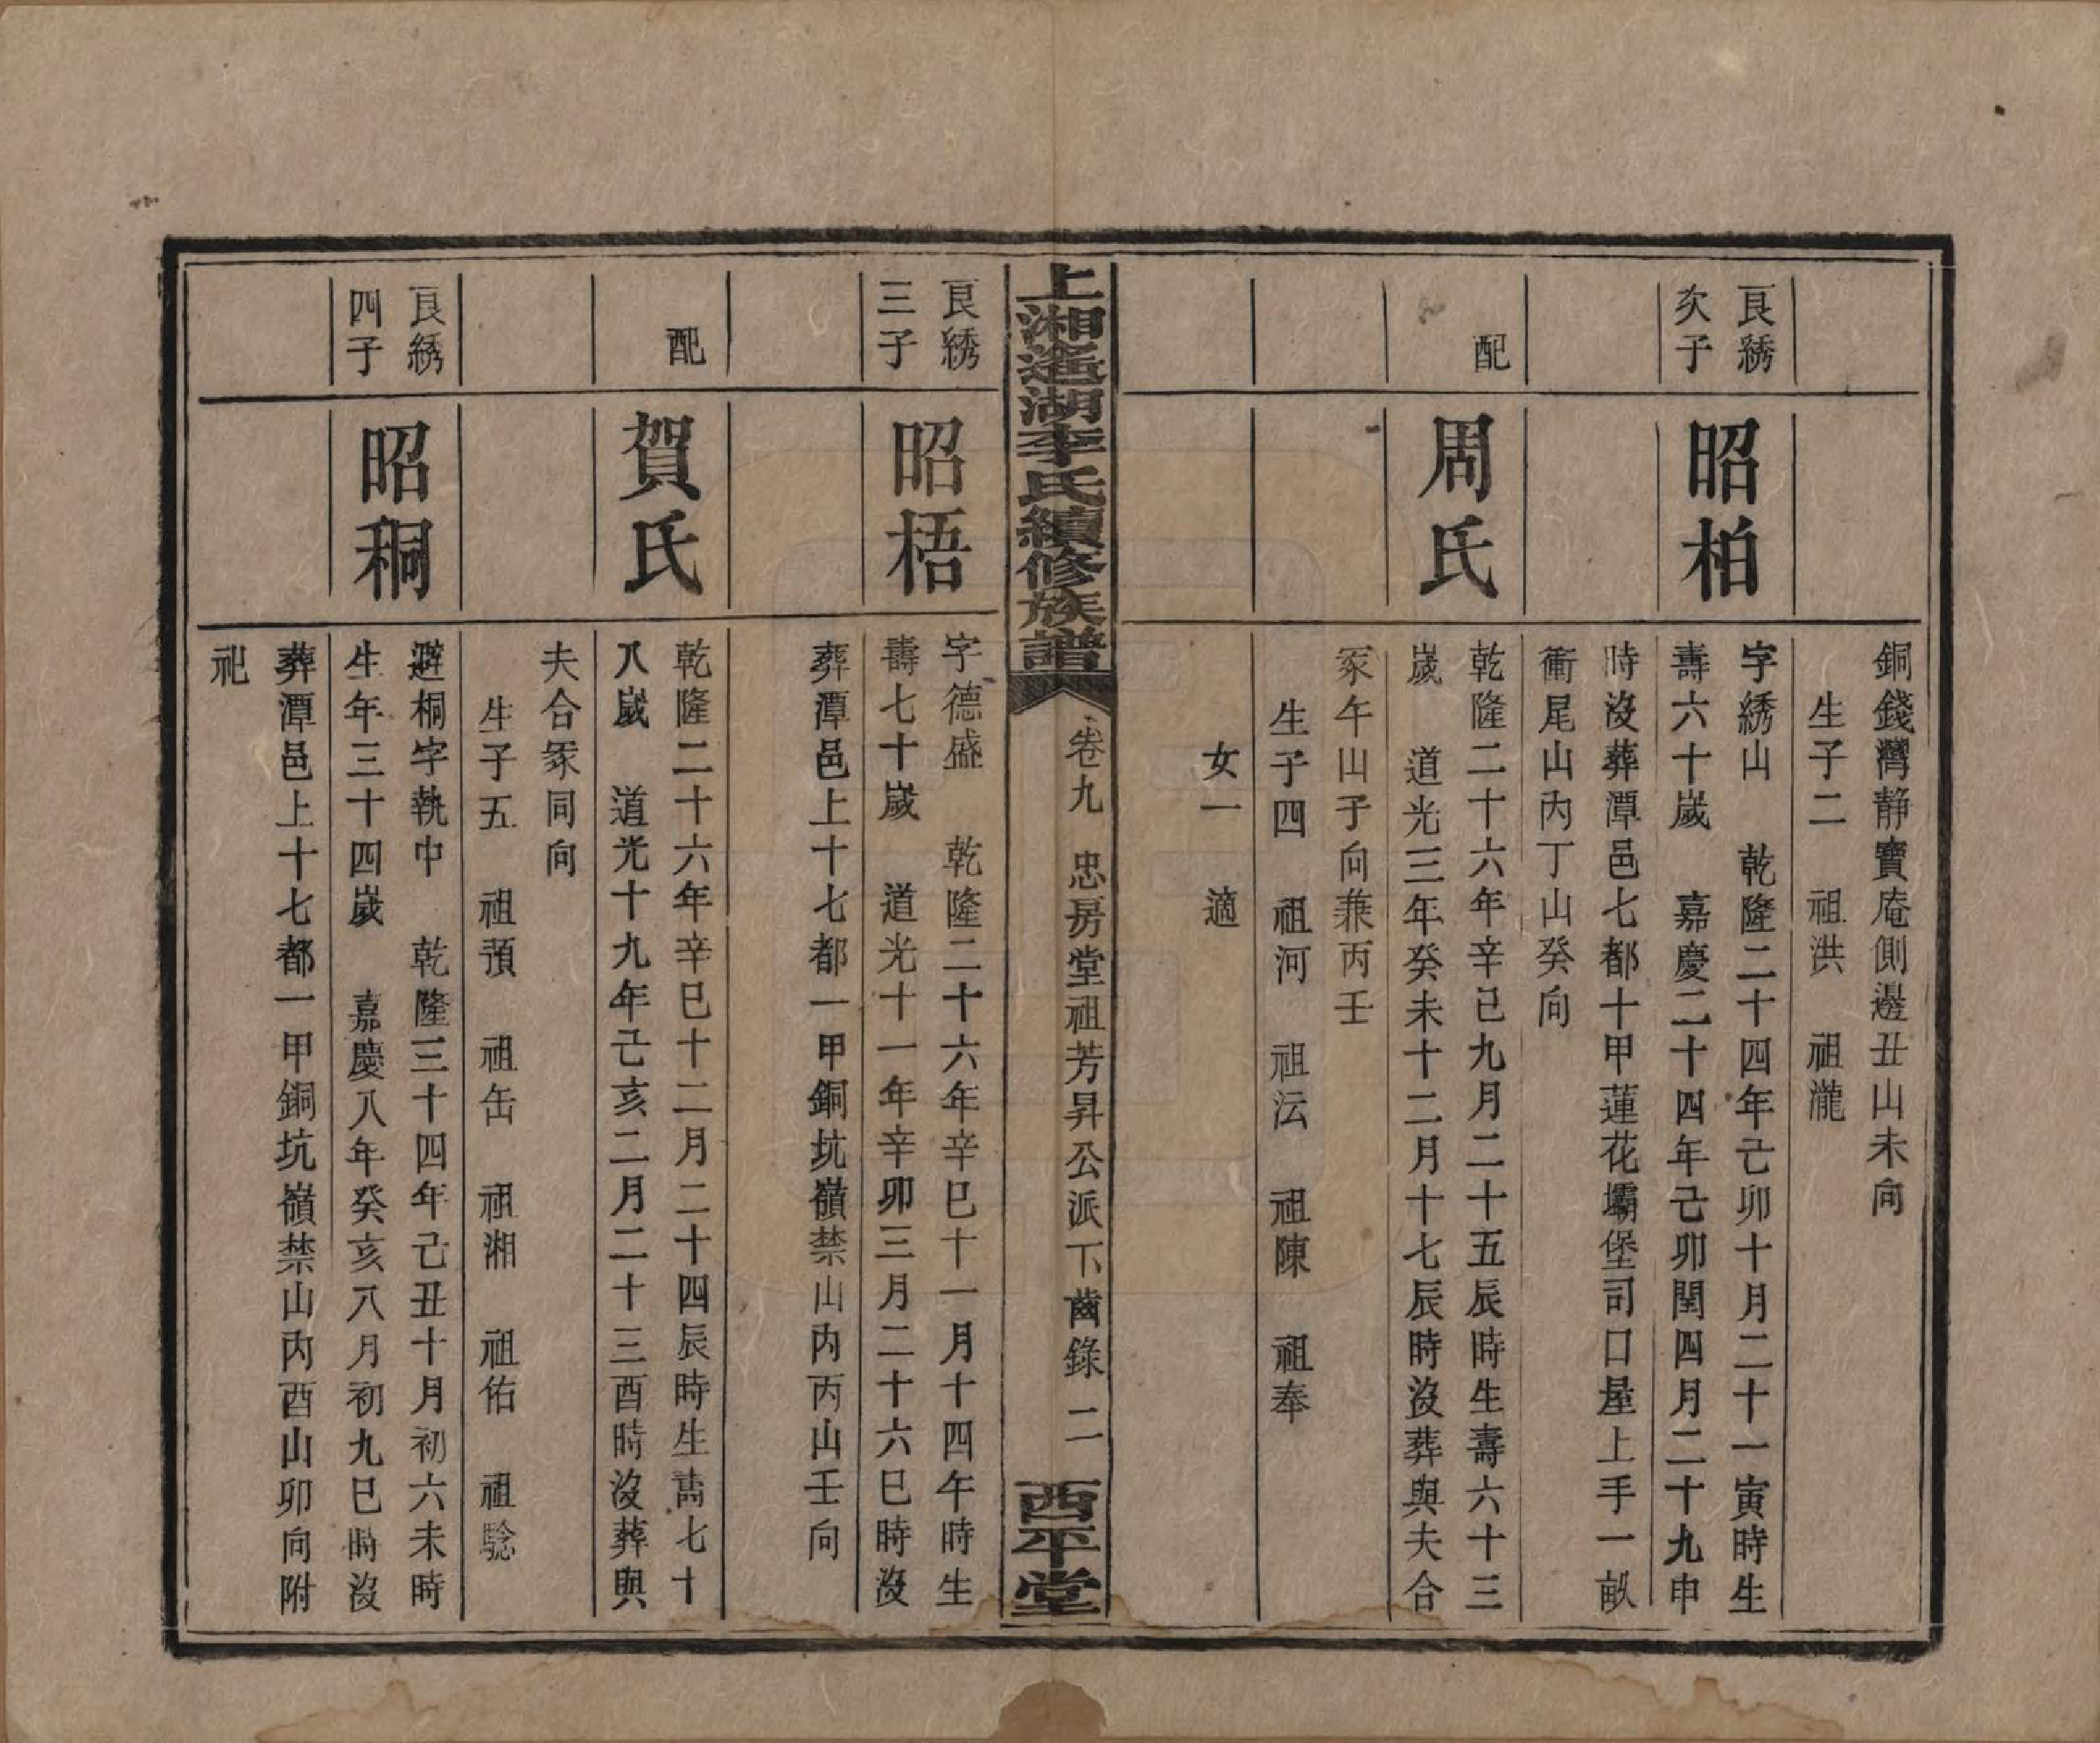 銅錢灣静寶庵側邊丑山未向
生子二　祖洪　祖瀧
良綉
次子
昭柏
字綉山　乾隆二十四年己卯十月二十一寅時生
壽六十歲　嘉慶二十四年己卯閏四月二十九申
時沒葬潭邑七都十甲蓮花壩堡司口屋上手一畝
衝尾山內丁山癸向
配
周氏
乾隆二十六年辛巳九月二十五辰時生壽六十三
歲　道光三年癸未十二月十七辰時沒葬與夫合
冢午山子向兼丙壬
生子四　祖河　祖沄　祖陳　祖奉
女一　適
上湘遙湖李氏續修族譜
卷九　忠房堂祖芳昇公派下齒錄　二
西平堂
良綉
三子
昭梧
字德盛　乾隆二十六年辛巳十一月十四午時生
壽七十歲　道光十一年辛卯三月二十六巳時沒
葬潭邑上十七都一甲銅坑嶺禁山內丙山壬向
配
賀氏
乾隆二十六年辛巳十二月二十四辰時生壽七十
八歲　道光十九年己亥二月二十三酉時沒葬與
夫合冢同向
生子五　祖預　祖缶　祖湘　祖佑　祖騐
良綉
四子
昭秱
避桐字執中　乾隆三十四年己丑十月初六未時
生年三十四歲　嘉慶八年癸亥八月初九巳時沒
葬潭邑上十七都一甲銅坑嶺禁山內酉山卯向附
祀